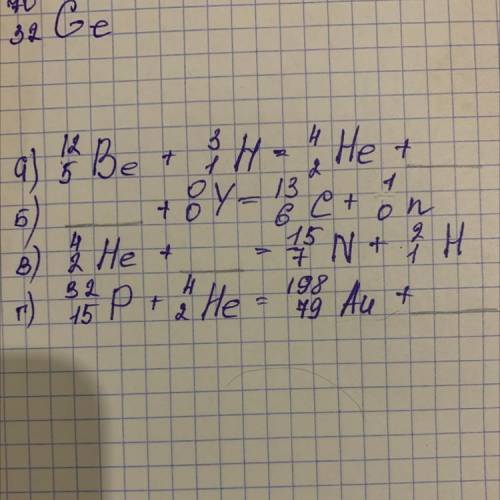 70
32 Ge
а) 12 5 Be + 3 1 H = 4 2 He + ___
б) ___ + 0 0 γ = 13 6 C + 1 0 n
в) 4 2 He + ___ = 15 7 N + 2 1 H
г) 32 15 P + 4 2 He = 198 79 Au + ___